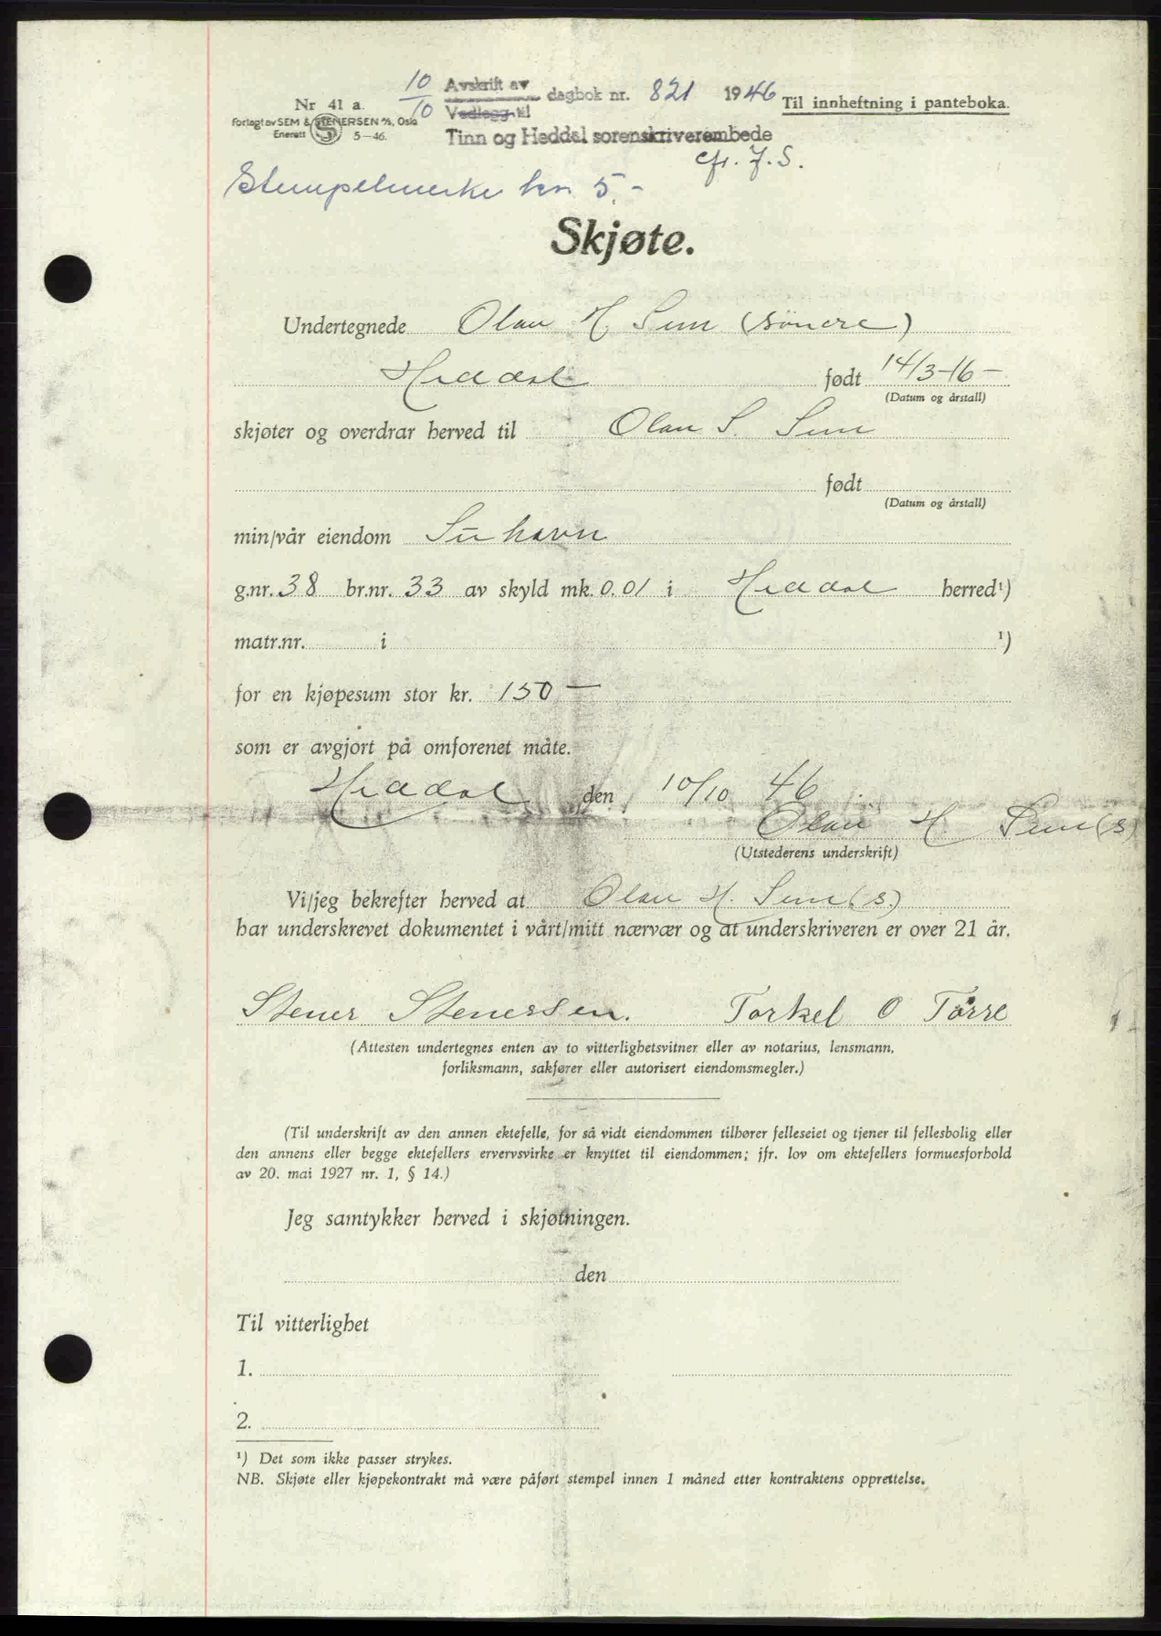 10/10 Avskrift av dagbok nr. 821 1946 Til innheftning i panteboka.
Vedlegg til
Tinn og Heddal sorenskriverembede
Nr 41 a.
Forlagt av SEM & STENERSEN A/S, Oslo
Enerett S 5—46.
cfr. J. S.
Stempelmerke kr 5.-
Skjøte.
Undertegnede Olav H. Sem (søndre)
Heddal født 14/3-16-
(Datum og årstall)
skjøter og overdrar herved til Olav S. Sem
født
(Datum og årstall)
min/vår eiendom
g.nr. 38 br.nr. 33 av skyld mk. 0.01 i Heddal herred¹)
matr.nr. i ¹)
for en kjøpesum stor kr. 150 —
som er avgjort på omforenet måte.
Heddal den 10/10 46
Olav H Sem (s)
(Utstederens underskrift)
Vi/jeg bekrefter herved at Olav H. Sem (s.)
har underskrevet dokumentet i vårt/mitt nærvær og at underskriveren er over 21 år.
Stener Stenersen. Torkel O Tørre
(Attesten undertegnes enten av to vitterlighetsvitner eller av notarius, lensmann,
forliksmann, sakfører eller autorisert eiendomsmegler.)
(Til underskrift av den annen ektefelle, for så vidt eiendommen tilhører felleseiet og tjener til fellesbolig eller
den annens eller begge ektefellers ervervsvirke er knyttet til eiendommen; jfr. lov om ektefellers formuesforhold
av 20. mai 1927 nr. 1, § 14.)
Jeg samtykker herved i skjøtningen.
den
Til vitterlighet
1.
2.
¹) Det som ikke passer strykes.
NB. Skjøte eller kjøpekontrakt må være påført stempel innen 1 måned etter kontraktens opprettelse.